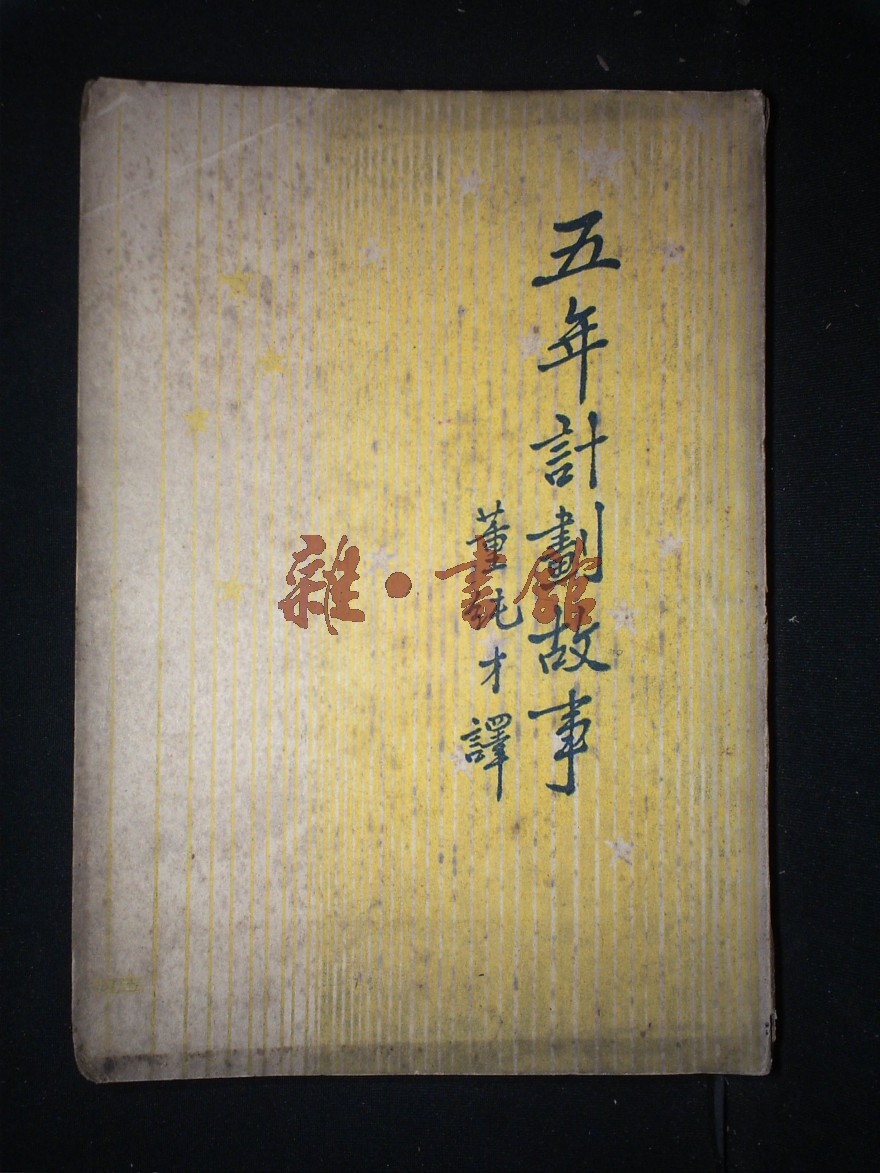 五年計劃故事
董純才譯
雜·書館